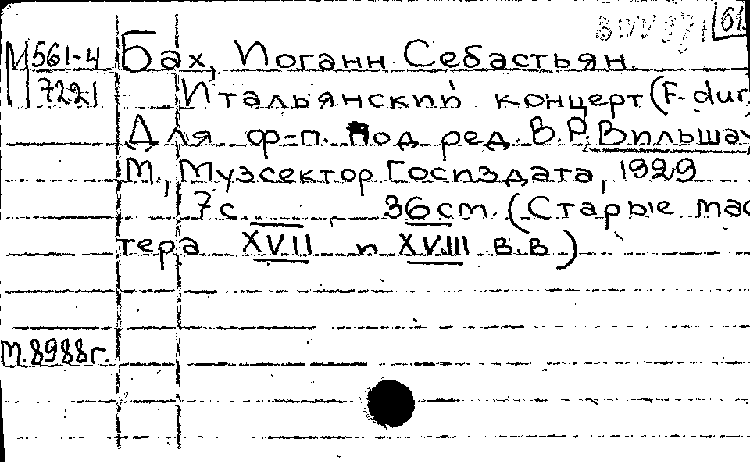 BWV 971 61
М 561-4 Бах, Иоганн Себастьян.
7221 Итальянский концерт (F-dur,
Для ф-п. Под ред. В.Р. Вильша
М., Музсектор Госиздата, 1929
7с. , 36cm. (Старые мас
тера XVII и XVIII в.в.)
м.8988г.